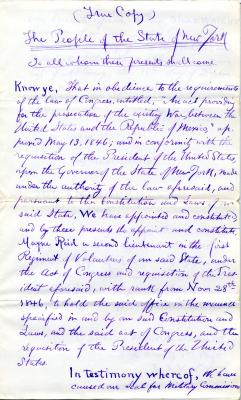 (True Copy)
The People of the State of New York
To all whom these presents shall come.
Know ye, That in obedience to the requirements
of the law of Congress, entitled, "An act providing
for the prosecution of the existing War between the
United States and the Republic of Mexico" ap-
proved May 13, 1846, and in conformity with the
requisition of the President of the United States,
upon the Governor of the State of New York, made
under the authority of the law aforesaid, and
pursuant to the Constitution and Laws of our
said State, We have appointed and constituted
and by these presents do appoint and constitute
Mayne Reid a second lieutenant in the first
Regiment of Volunteers of our said State, under
the act of Congress and requisition of the Pres-
ident aforesaid, with rank from Novr 28th
1846, to hold the said office in the manner
specified in and by our said Constitution and
Laws, and the said act of Congress, and the
requisition of the President of the United
States.
In testimony whereof, We have
caused our Seal for Military Commissions